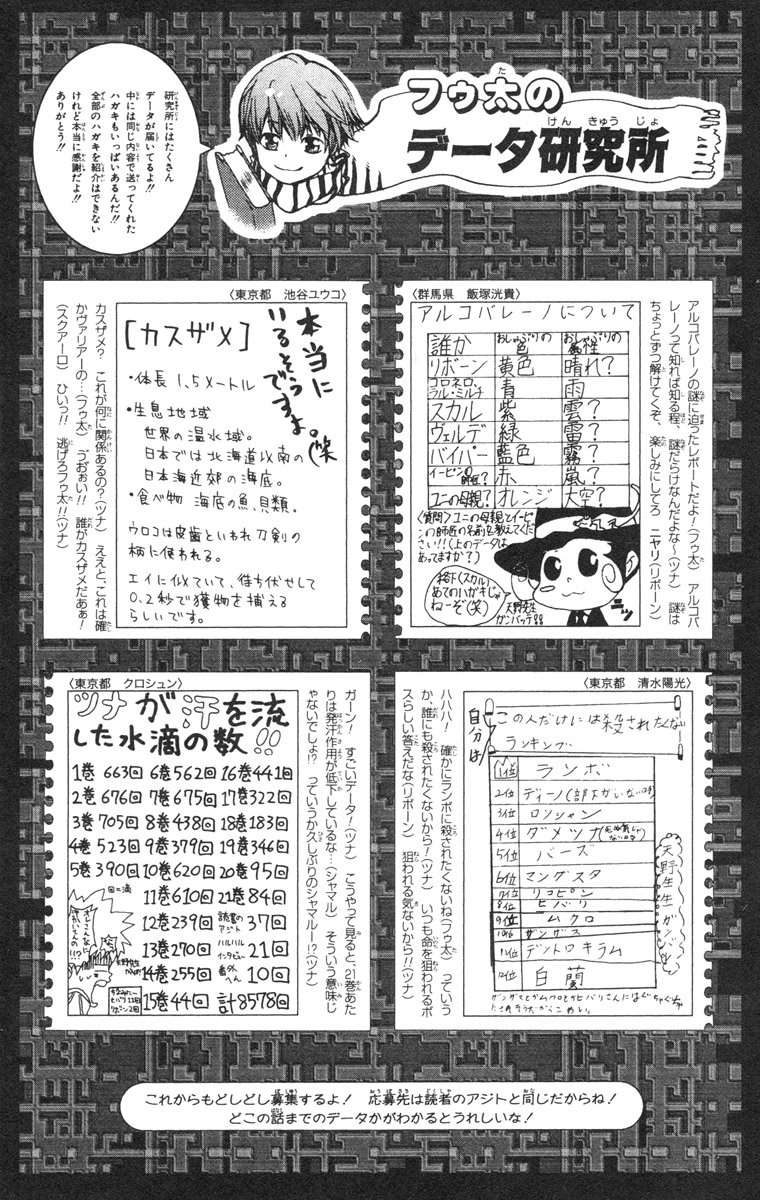 フゥ太の
データ研究所
研究所にはたくさん
データが届いてるよ!!
中には同じ内容で送ってくれた
ハガキもいっぱいあるんだ!!
全部のハガキを紹介はできない
けれど本当に感謝だよ!!
ありがとう!!
〈群馬県　飯塚洸貴〉
アルコバレーノの謎に迫ったレポートだよ!(フゥ太)　アルコバ
レーノって知れば知る程、謎だらけなんだよな〜(ツナ)　謎は
ちょっとずつ解けてくぞ、楽しみにしてろ　ニヤリ(リボーン)
アルコバレーノについて
誰か　おしゃぶりの色　おしゃぶりの属性
リボーン　黄色　晴れ?
コロネロ、ラル・ミルチ　青　雨
スカル　紫　雲?
ヴェルデ　緑　雷?
バイパー　藍色　霧?
イーピンの師匠?　赤　嵐?
ユニの母親?　オレンジ　大空?
〈質問〉ユニの母親とイーピ
ンの師匠の名前を教えてくだ
さい!!(上のデータは
あってますか?)
格下(スカル)
あてのハガキじゃ
ねーぞ(笑)
天野先生
ガンバッテ!!
〈東京都　池谷ユウコ〉
本当に
いるそうですよ。(笑
[カスザメ]
・体長 1.5メートル
・生息地域
世界の温水域。
日本では北海道以南の
日本海近郊の海底。
・食べ物 海底の魚、貝類。
ウロコは皮歯といわれ刀剣の
柄に使われる。
エイに似ていて、待ち伏せして
0.2秒で獲物を捕える
らしいです。
カスザメ?　これが何に関係あるの?(ツナ)　ええと、これは確
かヴァリアーの…(フゥ太)　うおぉい!!　誰がカスザメだあぁ!
(スクアーロ)　ひいっ!!　逃げろフゥ太!!(ツナ)
〈東京都　清水陽光〉
自分は!
この人だけには殺されたくな
ランキング
1位　ランボ
2位　ディーノ(部下がいない時)
3位　ロンシャン
4位　ダメツナ
5位　バーズ
6位　マングスタ
7位　リコピン
8位　ヒバリ
9位　ムクロ
10位　ザンザス
11位　デントロキラム
12位　白蘭
ハハハ!　確かにランボに殺されたくないね(フゥ太)　っていう
か、誰にも殺されたくないから!(ツナ)　いつも命を狙われるボ
スらしい答えだな(リボーン)　狙われる気ないから!!(ツナ)
〈東京都　クロシュン〉
ツナが汗を流
した水滴の数!!
1巻 663回 6巻562回 16巻441回
2巻 676回 7巻675回 17巻322回
3巻 705回 8巻438回 18巻183回
4巻 523回 9巻379回 19巻346回
5巻 390回 10巻620回 20巻95回
回=滴
11巻610回 21巻84回
12巻239回 読者のアジト 37回
13巻270回 ハルハルインタビュー 21回
14巻255回 番外へん 10回
15巻44回 計8578回
ガーン!　すごいデータ!(ツナ)　こうやって見ると、21巻あた
りは発汗作用が低下しているな…(シャマル)　そういう意味じ
ゃないでしょ!?　っていうか久しぶりのシャマルー!?(ツナ)
これからもどしどし募集するよ!　応募先は読者のアジトと同じだからね!
どこの話までのデータかがわかるとうれしいな!